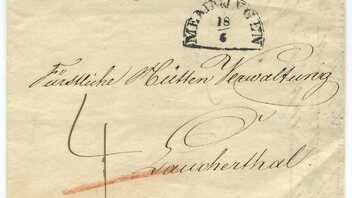 MEININGEN
18
6
Fürstliche Hütten Verwaltung
4
Laucherthal.